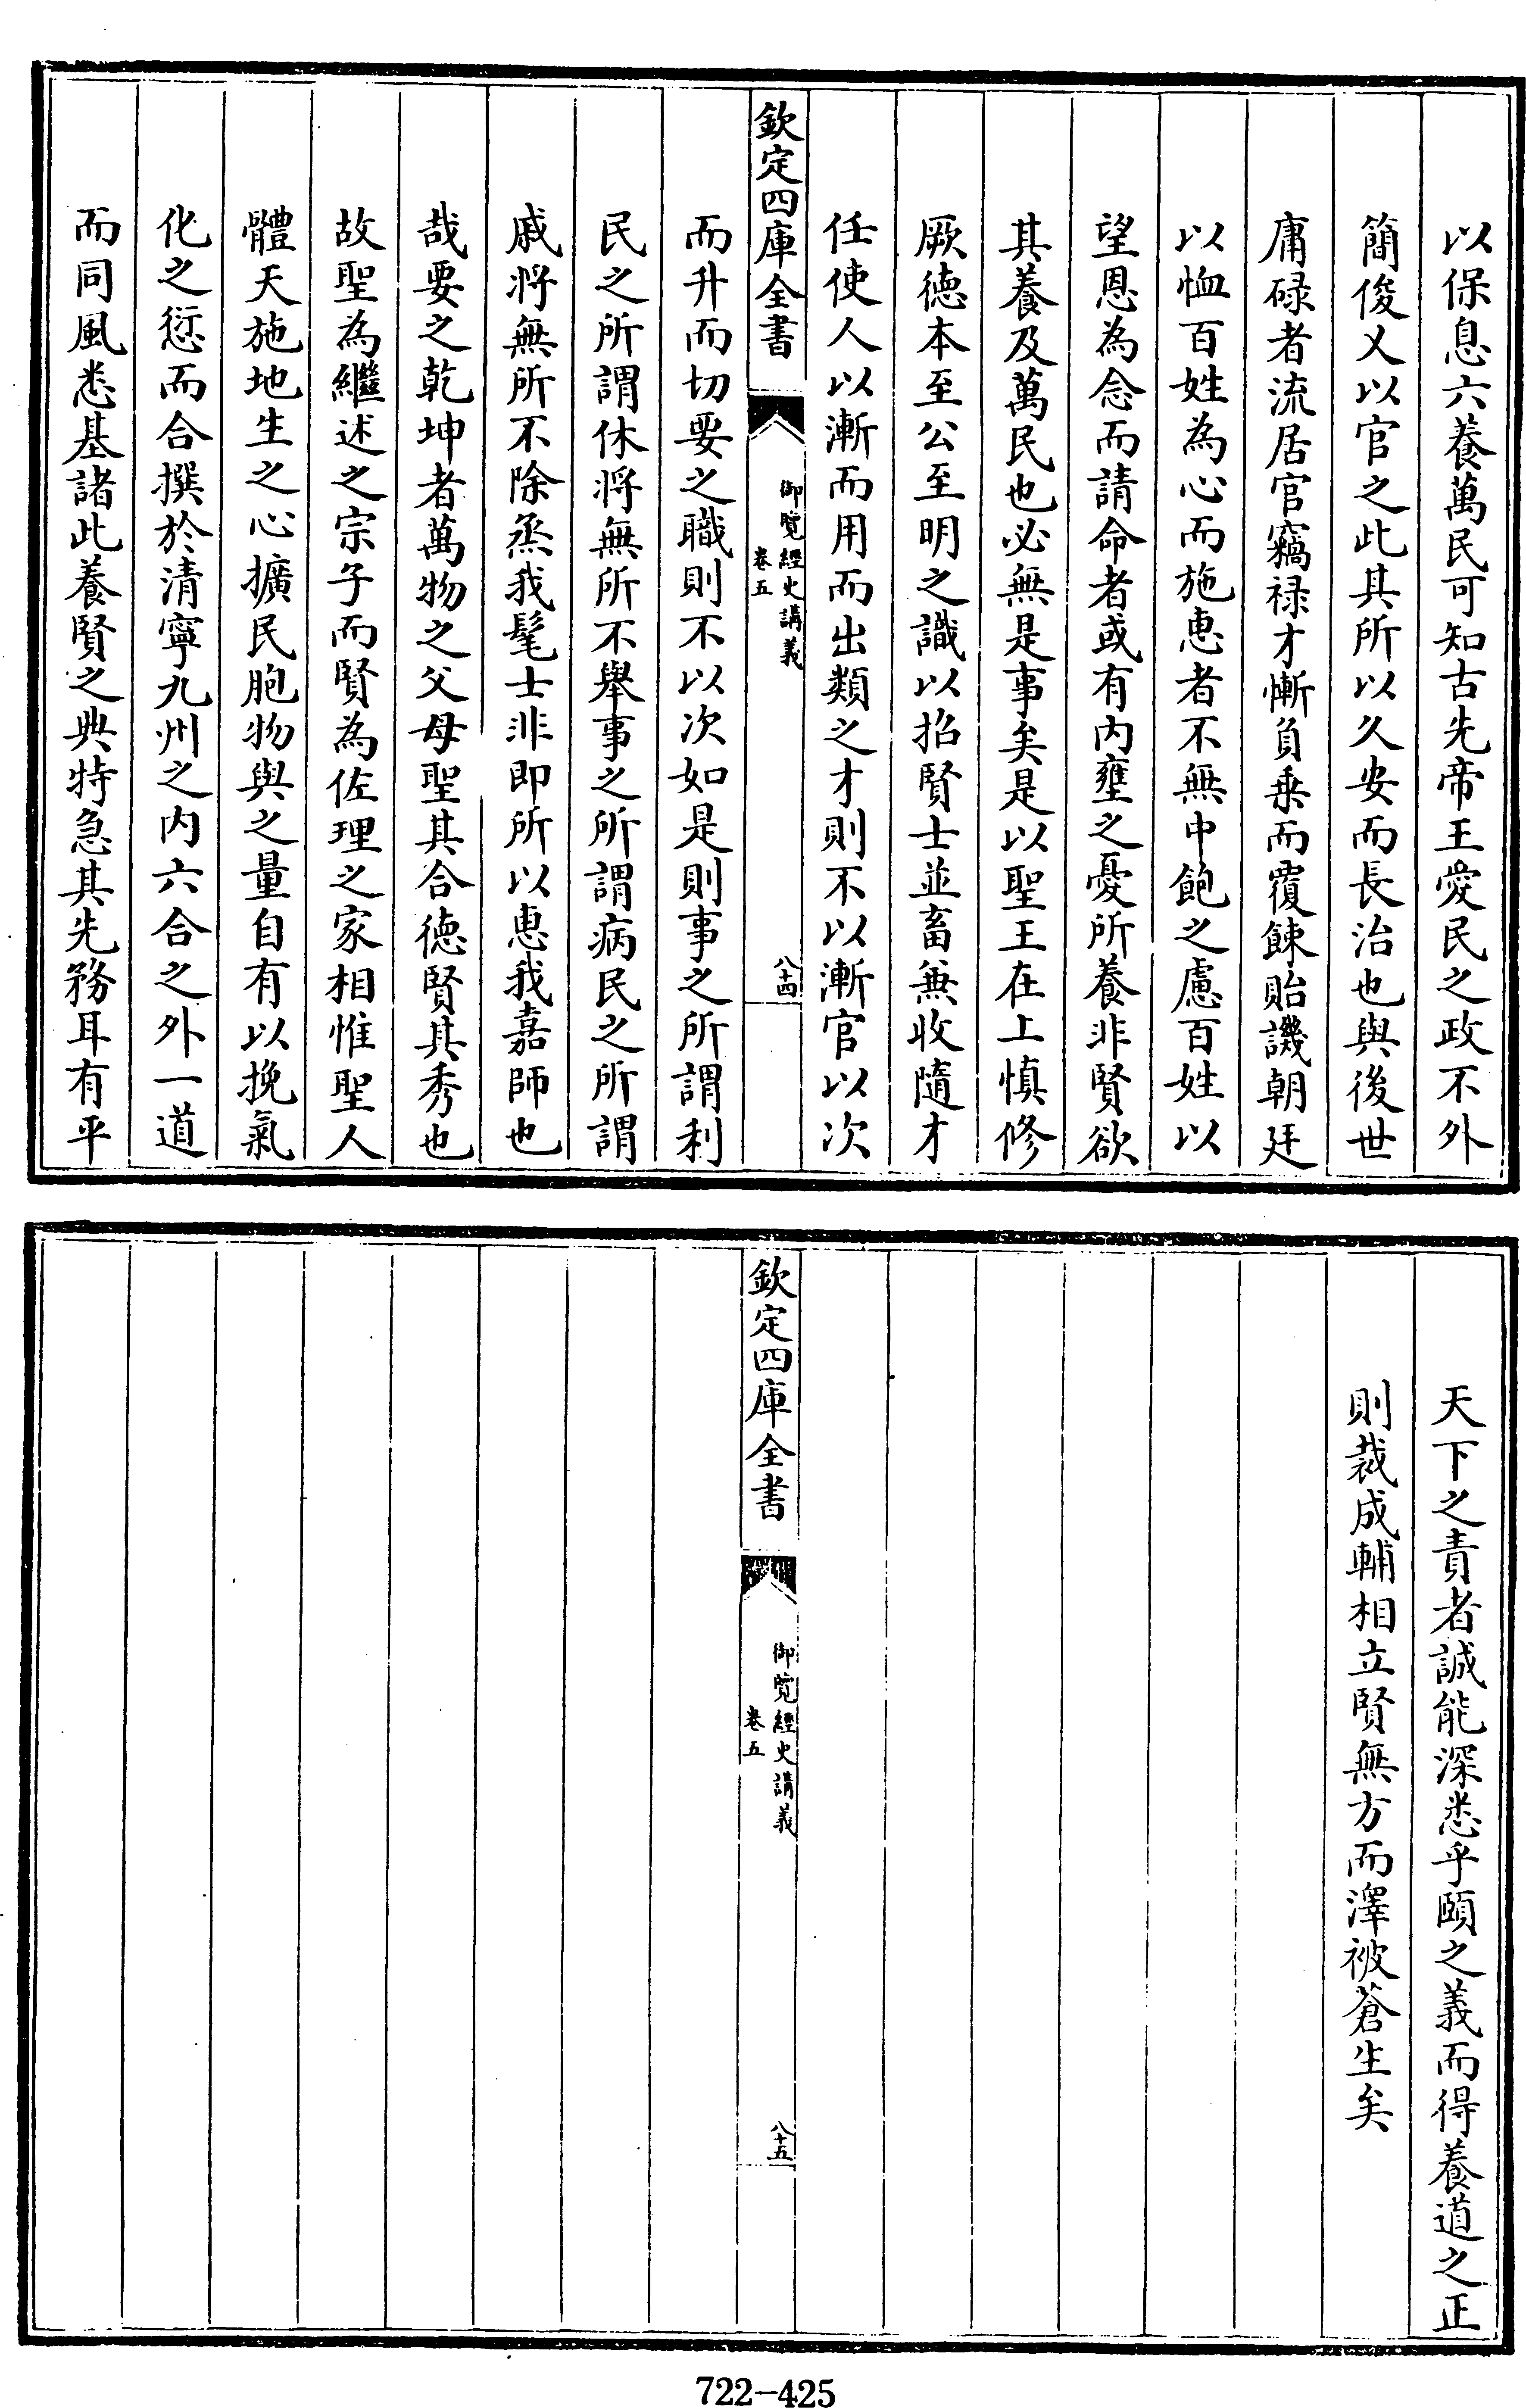 以保息六養萬民可知古先帝王愛民之政不外
簡俊乂以官之此其所以久安而長治也與後世
庸碌者流居官竊祿才慚負乗而覆餗貽譏朝廷
以恤百姓為心而施惠者不無中飽之慮百姓以
望恩為念而請命者或有内壅之憂所養非賢欲
其養及萬民也必無是事矣是以聖王在上慎修
厥德本至公至明之識以招賢士並畜兼收隨才
任使人以漸而用而出類之才則不以漸官以次
欽定四庫全書
御覽經史講義
卷五
八十四
而升而切要之職則不以次如是則事之所謂利
民之所謂休將無所不舉事之所謂病民之所謂
戚將無所不除烝我髦士非即所以惠我嘉師也
哉要之乾坤者萬物之父母聖其合德賢其秀也
故聖為繼述之宗子而賢為佐理之家相惟聖人
體天施地生之心擴民胞物與之量自有以挽氣
化之愆而合撰於清寧九州之内六合之外一道
而同風悉基諸此養賢之典特急其先務耳有平
天下之責者誠能深悉乎頤之義而得養道之正
則裁成輔相立賢無方而澤被蒼生矣
欽定四庫全書
御覽經史講義
卷五
八十五
722-425